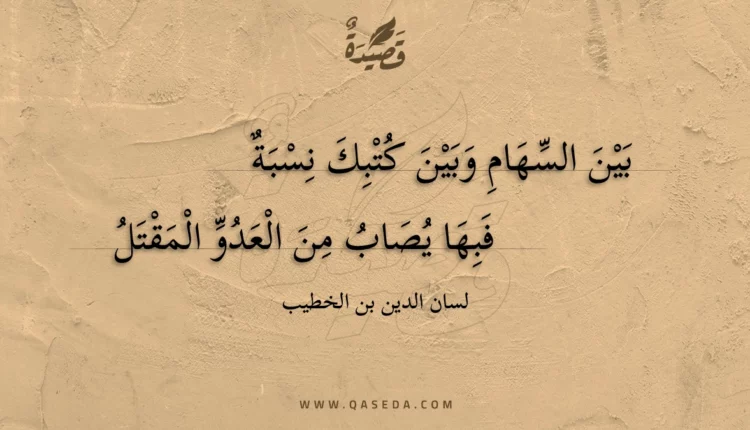 قَصِيدَةٌ
بَيْنَ السِّهَامِ وَبَيْنَ كُتْبِكَ نِسْبَةٌ
فَبِهَا يُصَابُ مِنَ الْعَدُوِّ الْمَقْتَلُ
لسان الدين بن الخطيب
WWW.QASEDA.COM